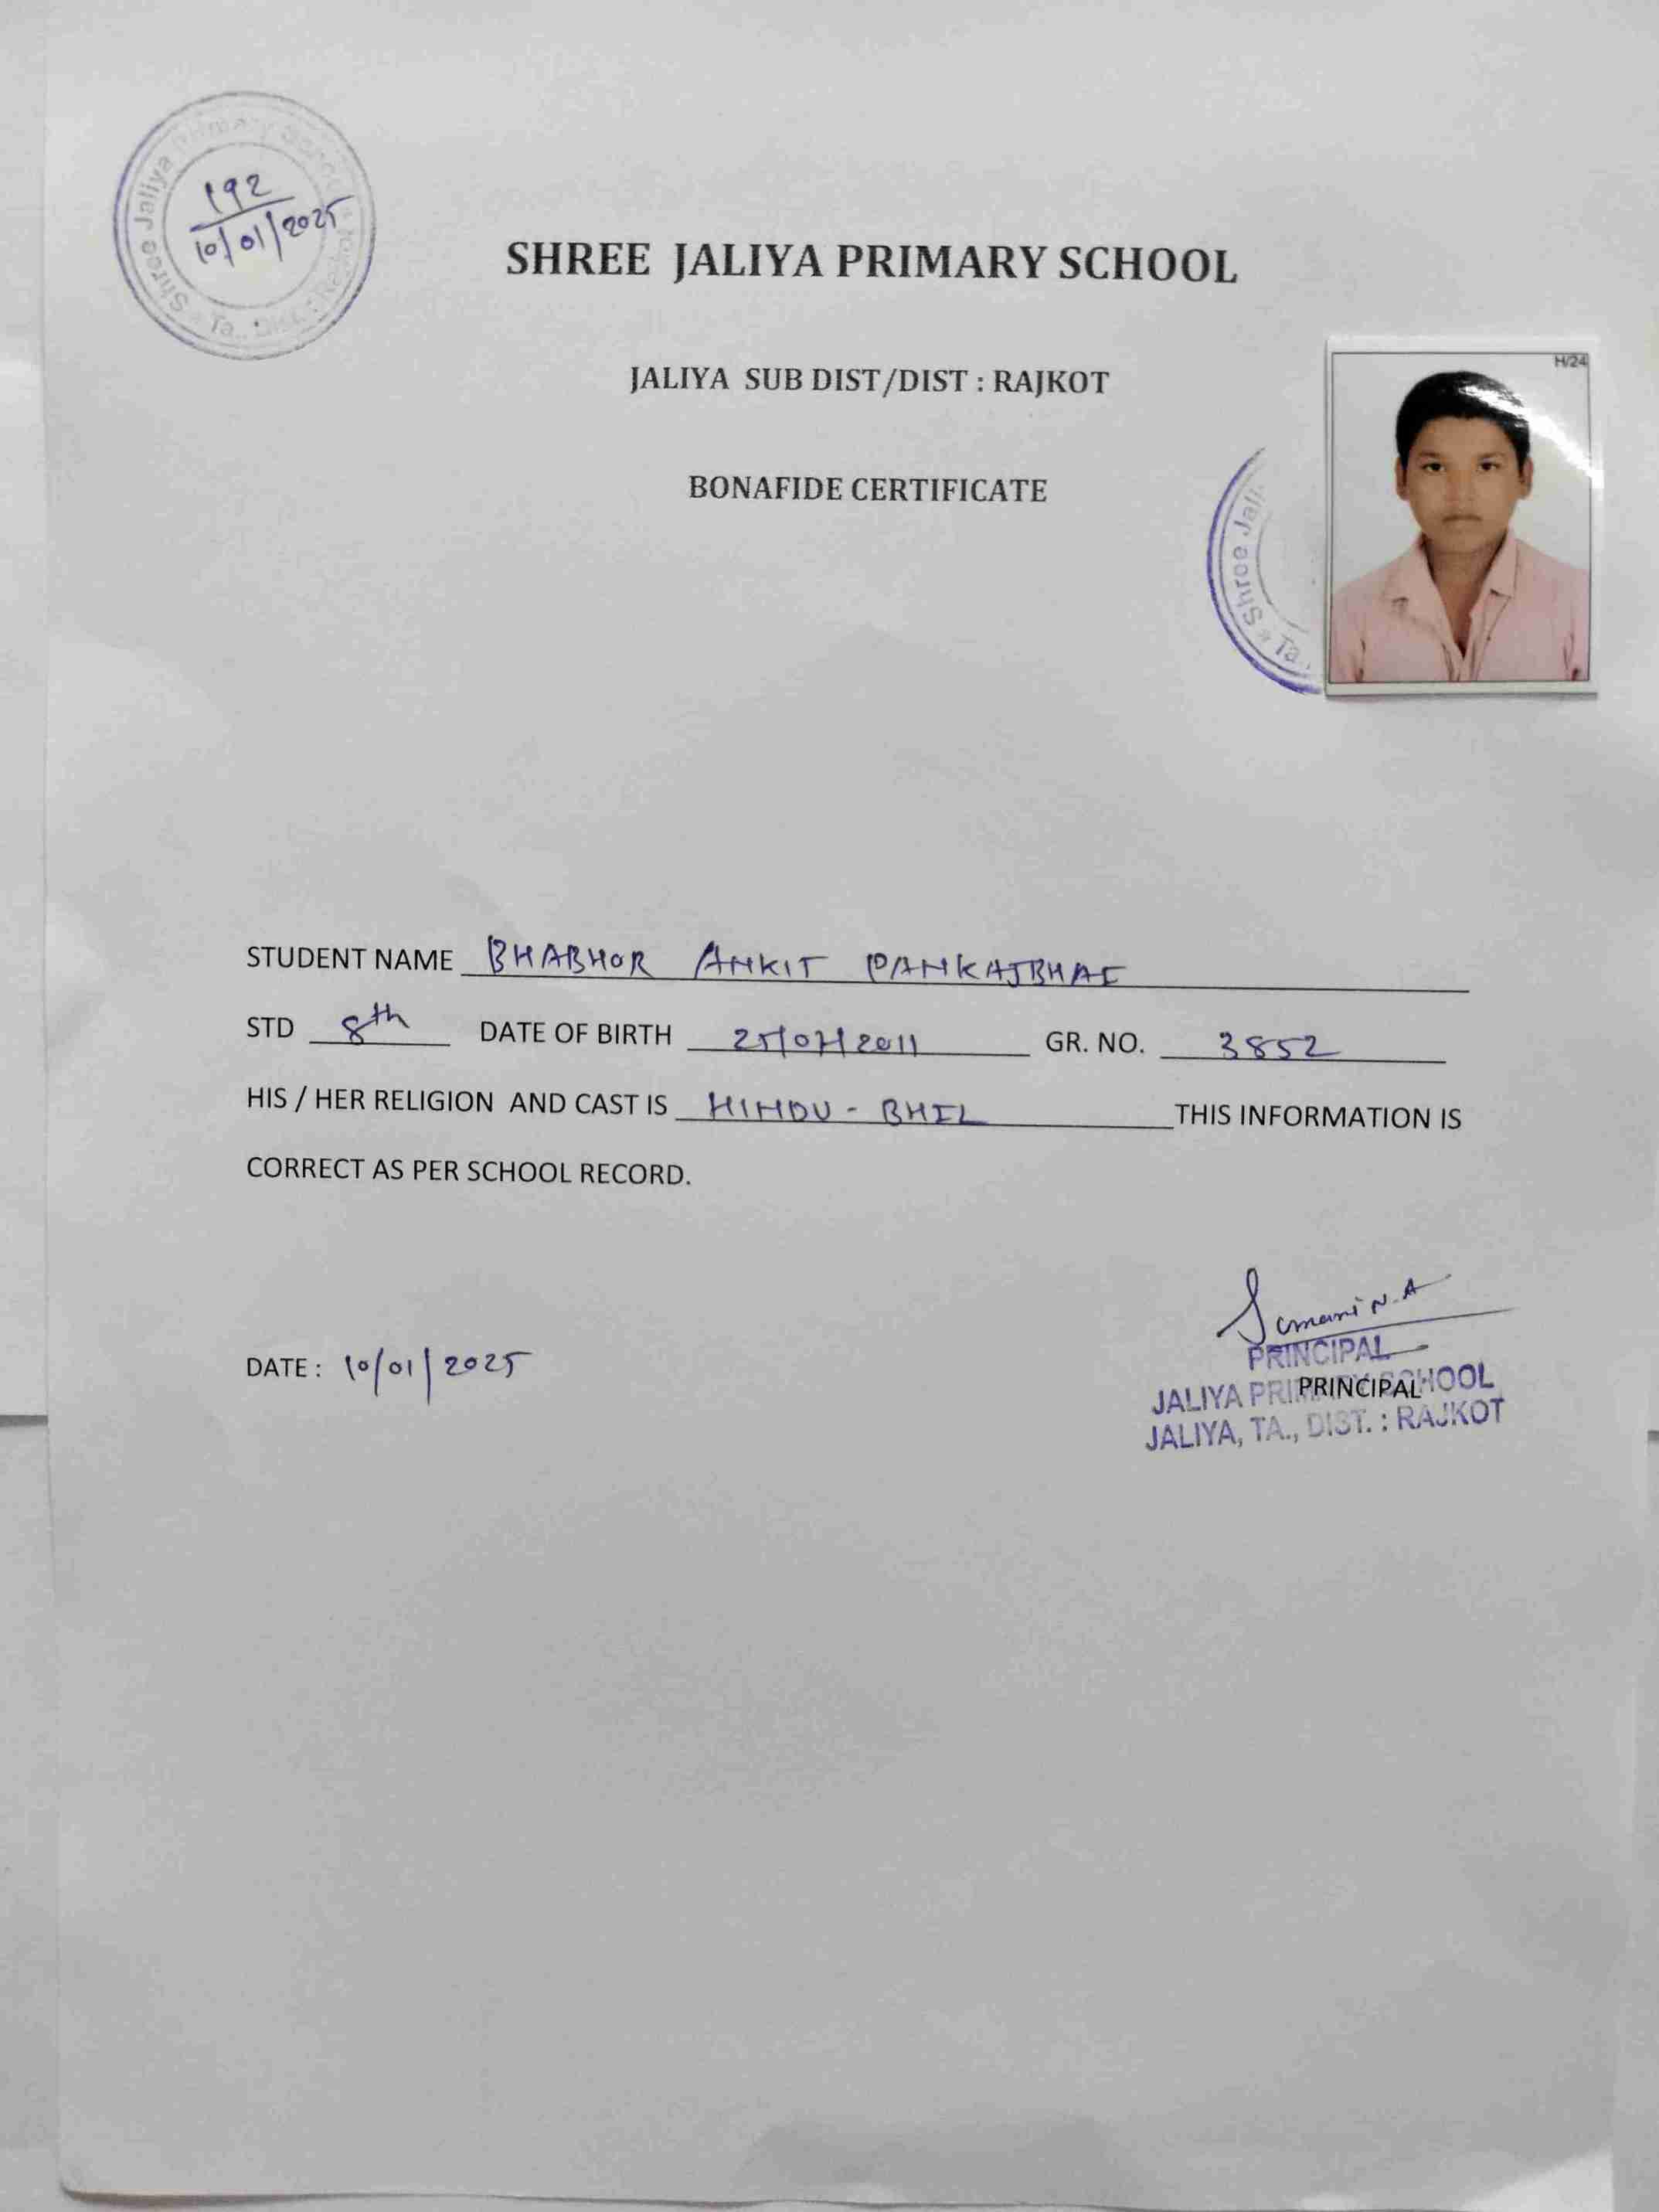 Shree Jaliya Primary School
Ta., Dist. : Rajkot
192
10/01/2025
SHREE JALIYA PRIMARY SCHOOL
JALIYA SUB DIST/DIST : RAJKOT
BONAFIDE CERTIFICATE
H/24
Shree Jali
Ta.,
STUDENT NAME BHABHOR ANKIT PANKAJBHAI
STD 8th DATE OF BIRTH 25/07/2011 GR. NO. 3852
HIS / HER RELIGION AND CAST IS HINDU - BHIL THIS INFORMATION IS
CORRECT AS PER SCHOOL RECORD.
DATE : 10/01/2025
N. A
PRINCIPAL
JALIYA PRIMARY SCHOOL
PRINCIPAL
JALIYA, TA., DIST. : RAJKOT